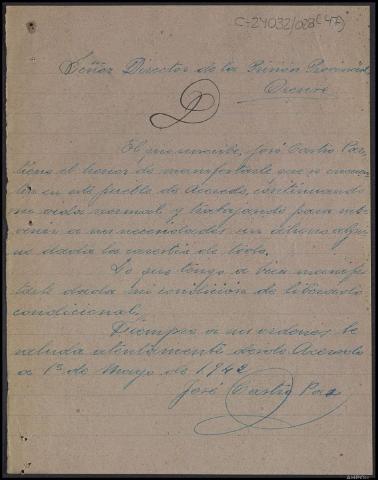 C-24032/028(47)
Señor Director de la Prisión Provincial,
Orense
El que suscribe, José Castro Paz,
tiene el honor de manifestarle que se encuen-
tra en este pueblo de Acevedo, continuando
su vida normal y trabajando para
a sus necesidades sin ahorro algu-
no dada la carestia de todo.
Lo que tengo a bien manifes-
tarle dada mi condición de libertado
condicional,
Siempre a sus ordenes le
saluda atentamente desde Acevedo
a 1º de Mayo de 1942
José Castro Paz